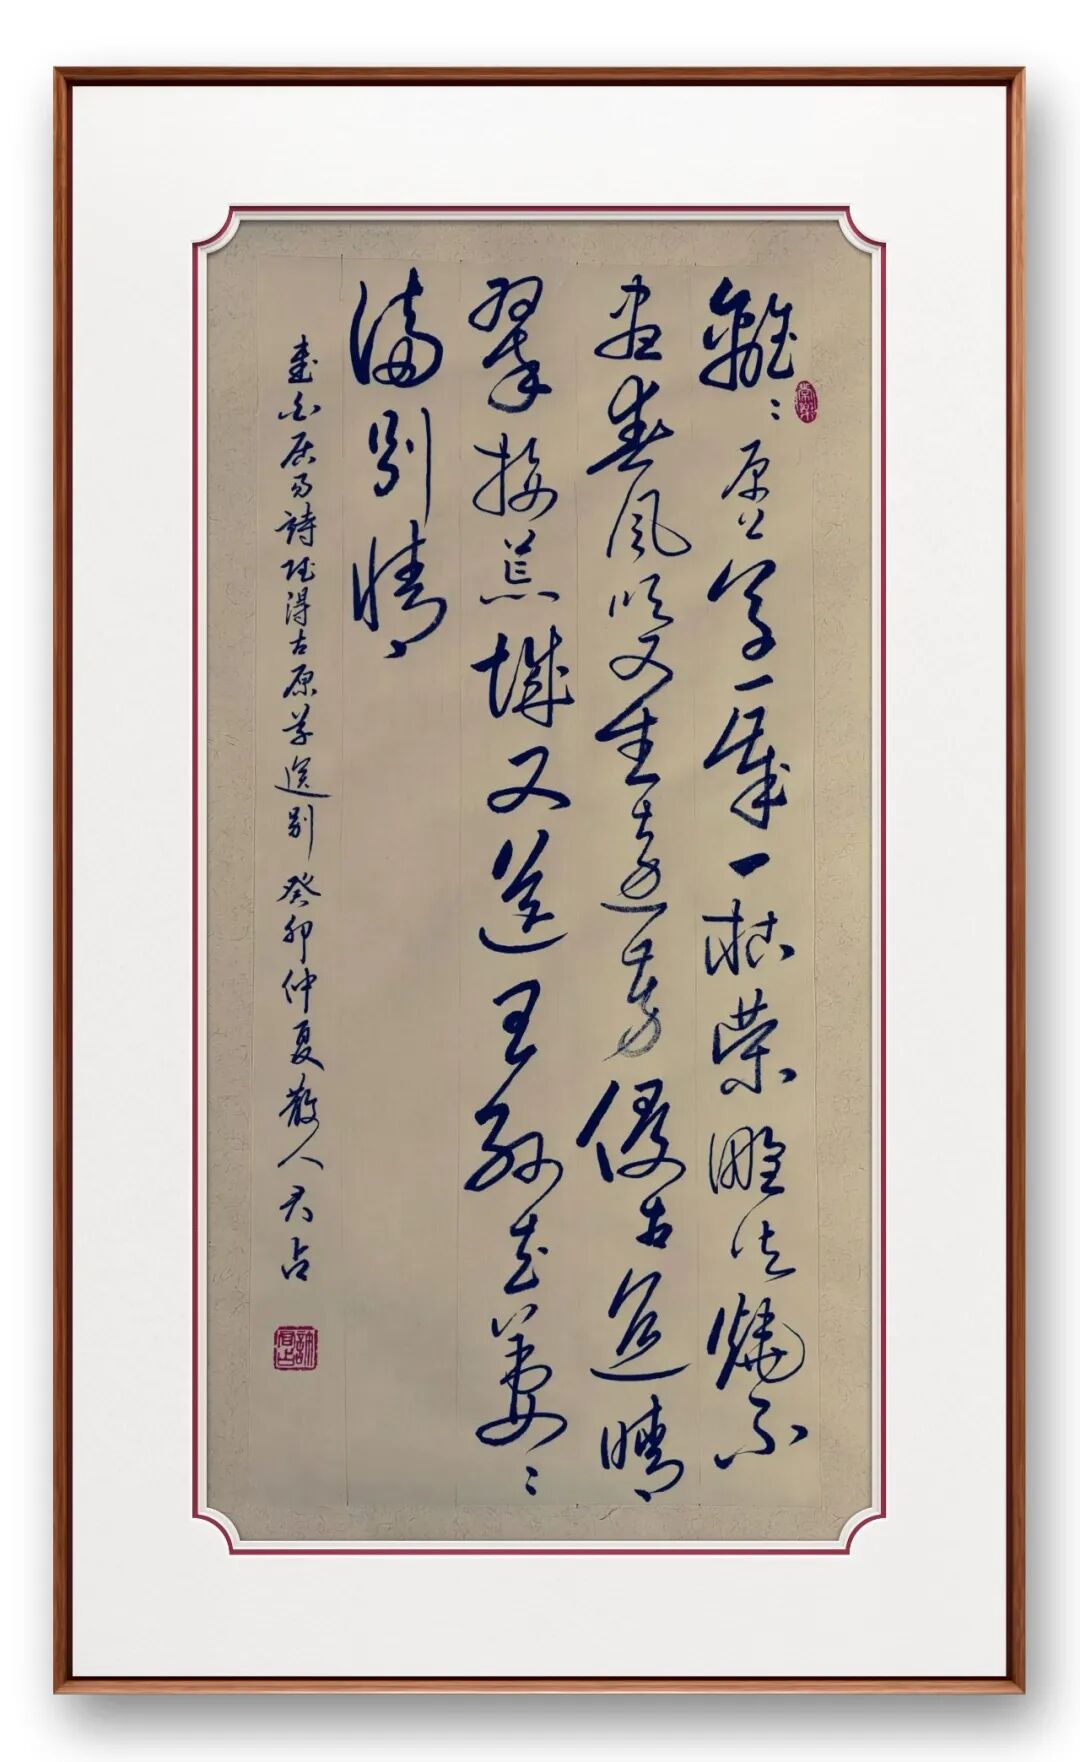 離〻原上草一歲一枯榮野火燒不
盡春風吹又生遠芳侵古道晴
翠接荒城又送王孫去萋〻
滿別情
書白居易詩賦得古原草送別 癸卯仲夏散人君占